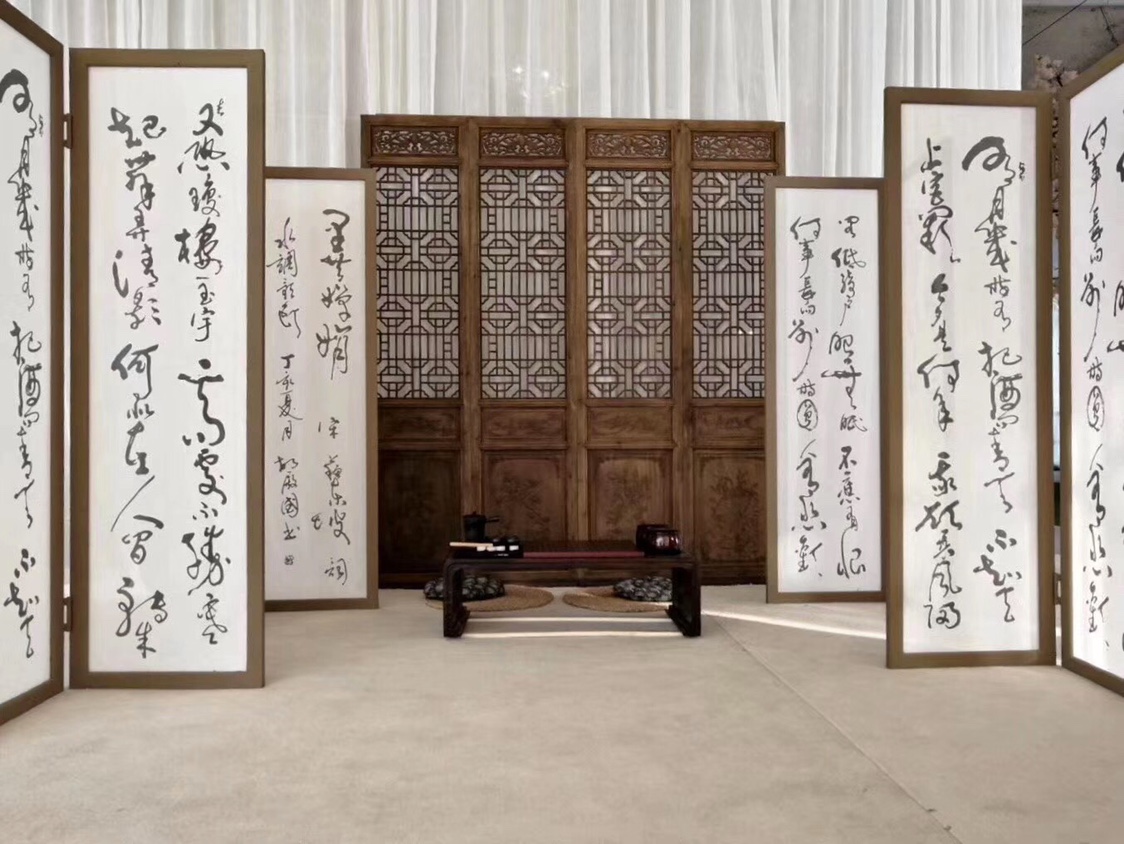 何事長向別時圓 人有悲歡
明月幾時有 把酒問青天 不知天
上宮闕 今夕是何年 我欲乘風歸
閣低綺戶 照無眠 不應有恨
何事長向別時圓 人有悲歡
里共嬋娟 宋 蘇東坡 詞
水調歌頭 丁亥夏月
又恐瓊樓玉宇 高處不勝寒
起舞弄清影 何似在人間 轉朱
明月幾時有 把酒問青天 不知天